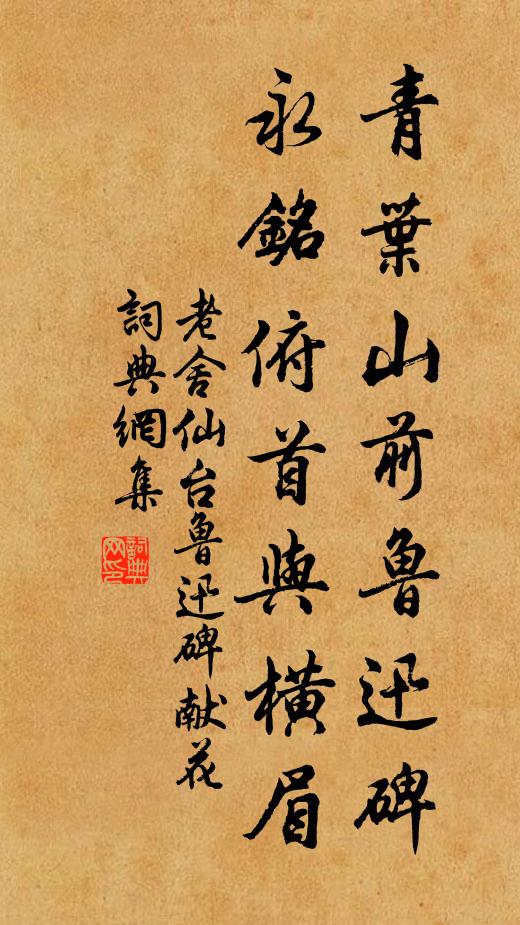 青葉山前魯迅碑
永銘俯首與橫眉
老舍仙台魯迅碑献花
詞典網集
詞典网印